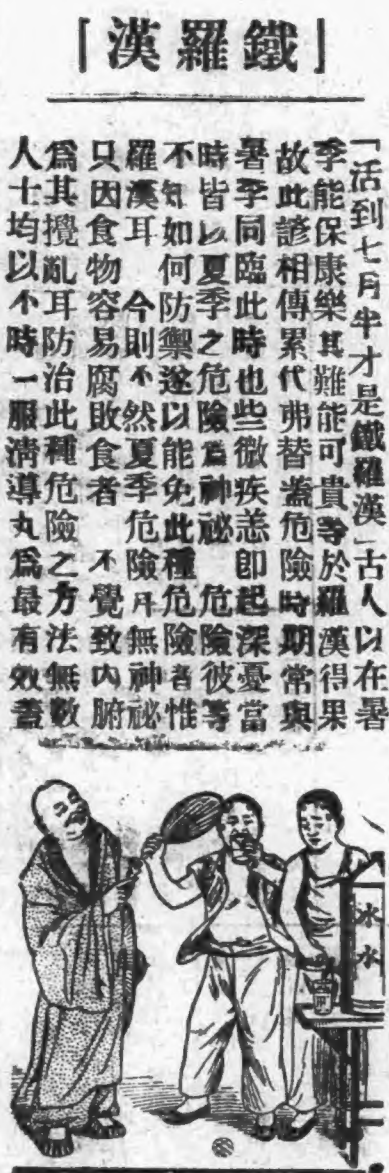 「鐵羅漢」
「活到七月半才是鐵羅漢」古人以在暑
季能保康樂其難能可貴等於羅漢得果
故此諺相傳累代弗替蓋危險時期常與
暑季同臨此時也些微疾恙卽起深憂當
時皆以夏季之危險爲神祕 危險彼等
不知如何防禦遂以能免此種危險者惟
羅漢耳 今則不然夏季危險幷無神祕
只因食物容易腐敗食者 不覺致內腑
爲其攪亂耳防治此種危險之方法無數
人士均以不時一服清導丸爲最有效蓋
冰水